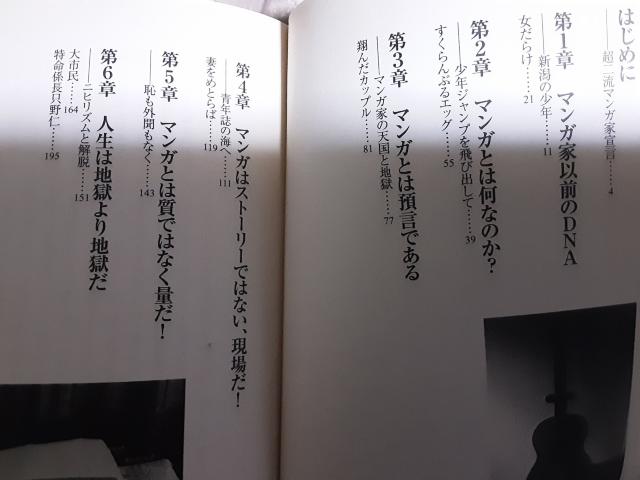 はじめに
――超二流マンガ家宣言……4
第1章　マンガ家以前のDNA
――新潟の少年……11
女だらけ……21
第2章　マンガとは何なのか？
――少年ジャンプを飛び出して……39
すくらんぶるエッグ……55
第3章　マンガとは預言である
――マンガ家の天国と地獄……77
翔んだカップル……81
第4章　マンガはストーリーではない、現場だ！
――青年誌の海へ……111
妻をめとらば……119
第5章　マンガとは質ではなく量だ！
――恥も外聞もなく……143
第6章　人生は地獄より地獄だ
――ニヒリズムと解脱……151
大市民……164
特命係長只野仁……195